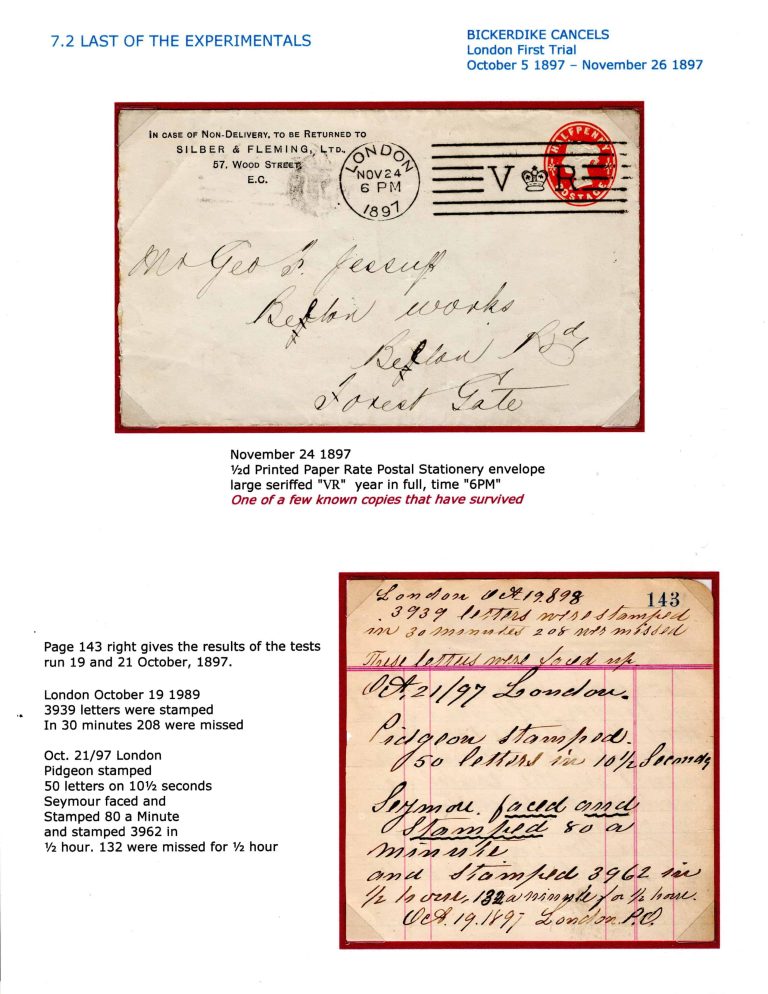 7.2 LAST OF THE EXPERIMENTALS
BICKERDIKE CANCELS
London First Trial
October 5 1897 – November 26 1897
IN CASE OF NON-DELIVERY, TO BE RETURNED TO
SILBER & FLEMING, LTD.,
57, WOOD STREET,
E.C.
LONDON
NOV 24
6 PM
1897
V R
HALFPENNY
POSTAGE
Mr Geo Jessup
works
Rd
Forest Gate
November 24 1897
½d Printed Paper Rate Postal Stationery envelope
large seriffed "VR" year in full, time "6PM"
One of a few known copies that have survived
Page 143 right gives the results of the tests
run 19 and 21 October, 1897.
London October 19 1989
3939 letters were stamped
In 30 minutes 208 were missed
Oct. 21/97 London
Pidgeon stamped
50 letters on 10½ seconds
Seymour faced and
Stamped 80 a Minute
and stamped 3962 in
½ hour. 132 were missed for ½ hour
143
London Oct. 19. 898
3939 letters were stamped
in 30 minutes 208 were missed
These letters were faced up
Oct. 21/97 London.
Pidgeon stamped.
50 letters in 10½ Seconds
Seymou. faced and
Stamped 80 a
minute
and stamped 3962 in
½ hour, 132 a minute for ½ hour.
Oct. 19. 1897 London P.O.